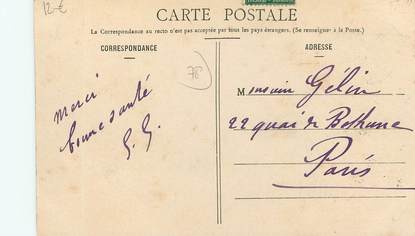 12 €
CARTE POSTALE
La Correspondance au recto n'est pas acceptée par tous les pays étrangers. (Se renseigner à la Poste.)
CORRESPONDANCE
ADRESSE
78
merci
bonne santé
G. G.
Monsieur Gélin
22 quai de Béthune
Paris